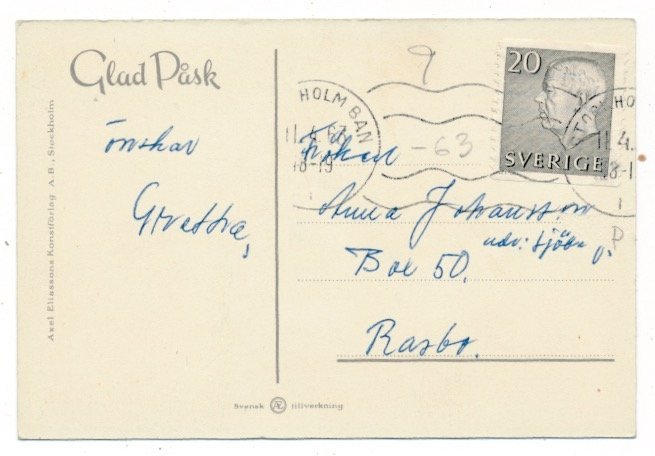 Glad Påsk
önskar
Gretha,
Axel Eliassons Konstförlag A.B., Stockholm
9
20
SVERIGE
HOLM BAN
11.4.63
18-19
-63
STO HO
11.4.
18-1
Fröken
Anna Johansson
adr: Sjöbo
Box 50.
Rasbo.
P
Svensk Æ tillverkning